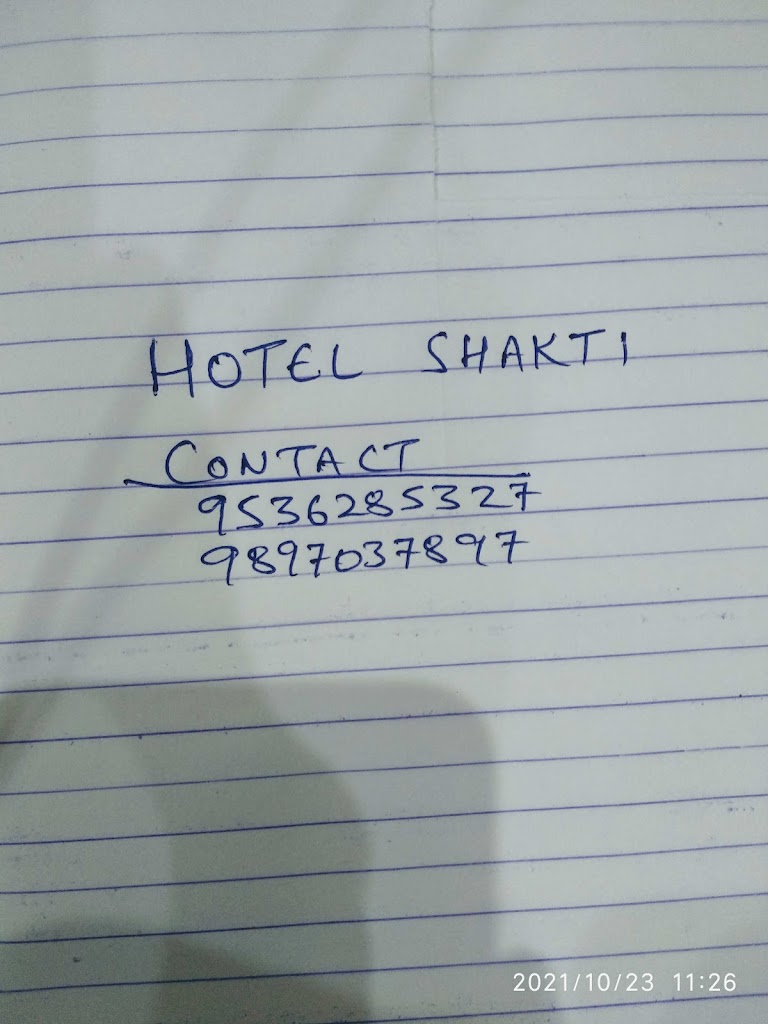 HOTEL SHAKTI
CONTACT
9536285327
9897037897
2021/10/23 11:26